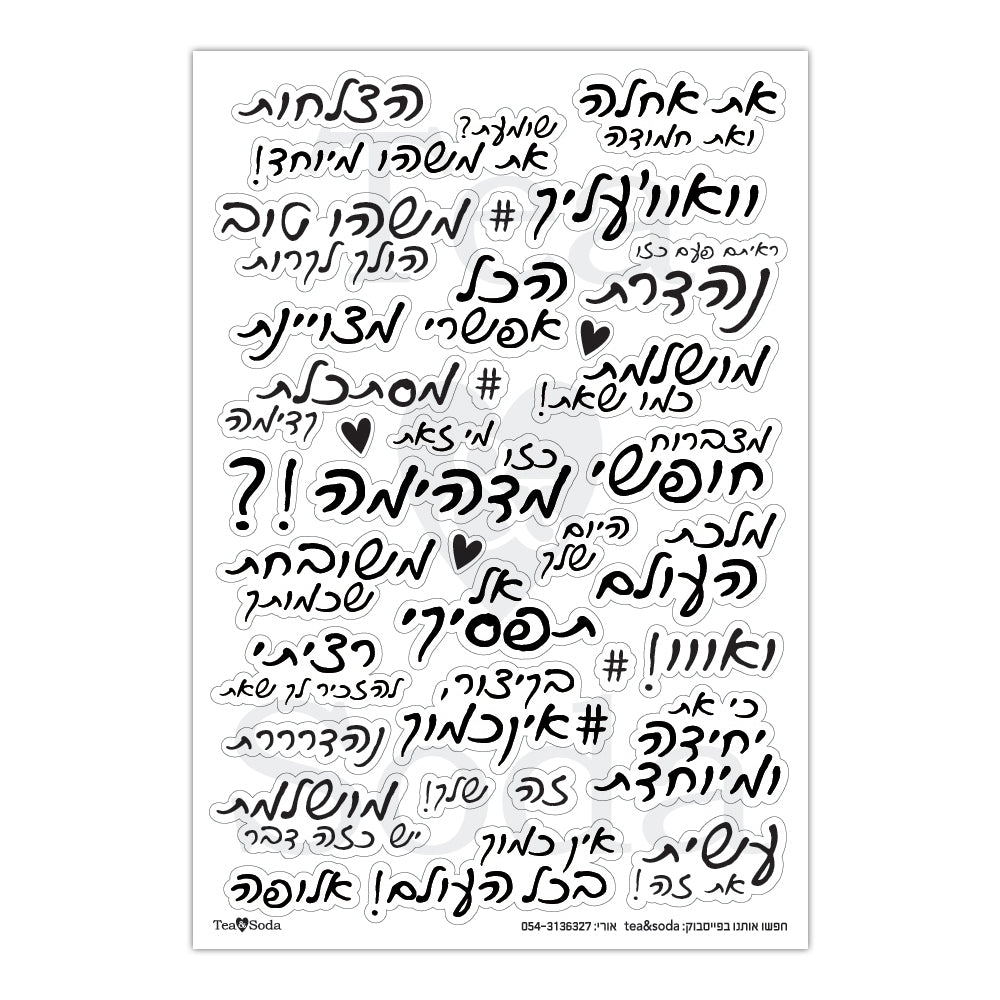 את אחלה
ואת חמודה
הצלחות
שומעת?
את משהו מיוחד!
וואוו'עליך
#
משהו טוב
הולך לקרות
ראיתם פעם כזו
נהדרת
הכל
אפשרי
מצויינת
מושלמת
כמו שאת!
#
מסתכלת
קדימה
מי זאת
כזו
מדהימה!?
מצברוח
חופשי
היום
שלך
מלכת
העולם
משובחת
שכמותך
אל
תפסיקי
ואווו!
#
רציתי
להזכיר לך שאת
נהדרררת
בקיצור,
#אינכמוך
כי את
יחידה
ומיוחדת
זה שלך!
מושלמת
יש כזה דבר
אין כמוך
בכל העולם!
עשית
את זה!
אלופה
Tea&Soda
חפשו אותנו בפייסבוק: tea&soda אורי: 054-3136327
Tea
&
Soda